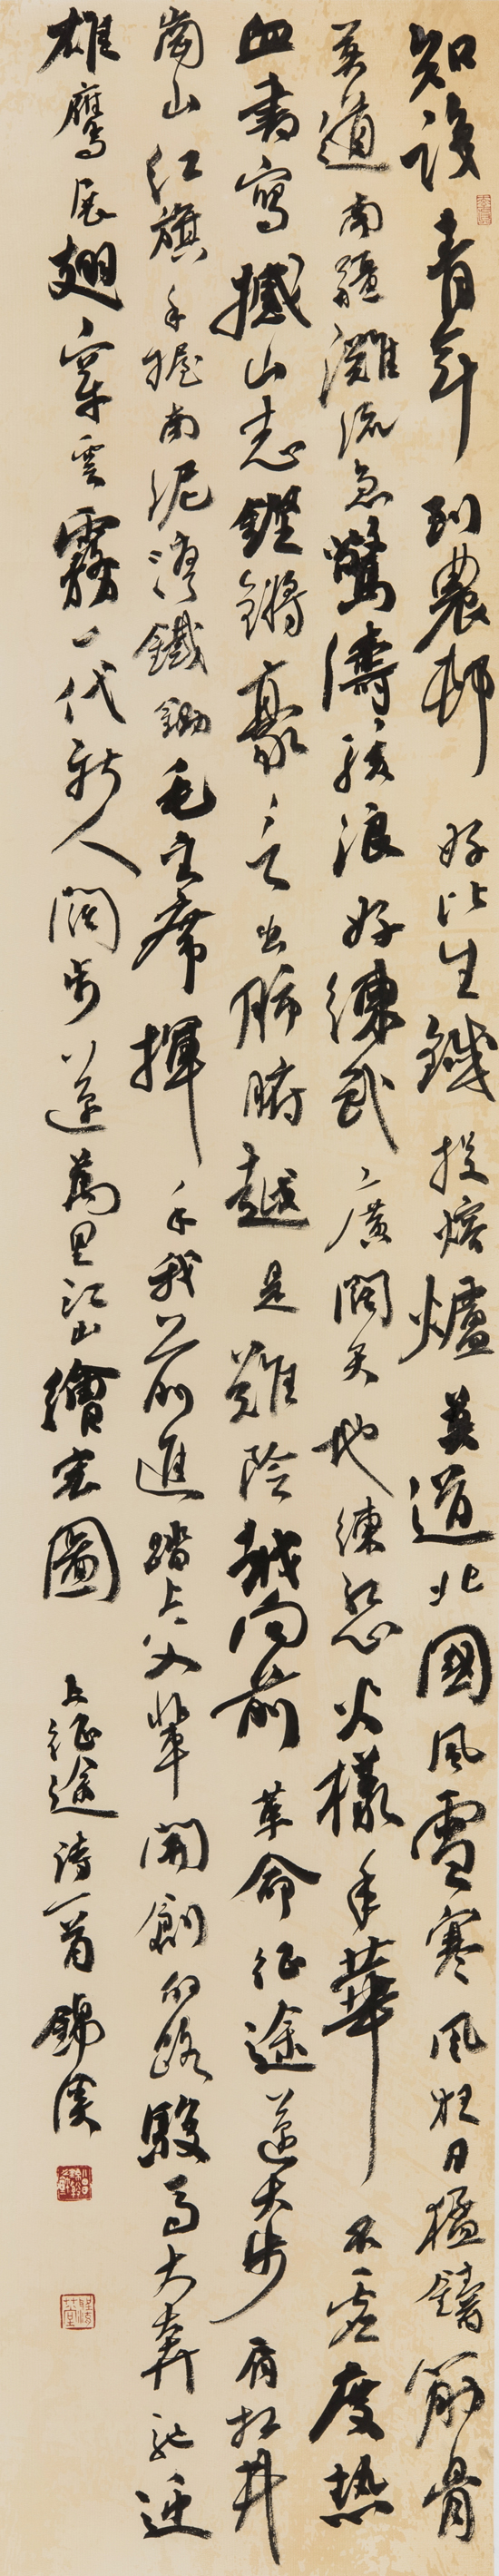 知識青年到農邨好比生鐵投熔爐莫道北國風雪寒風狂日猛鑄筋骨
莫道南疆灘流急驚濤駭浪好練武廣闊天地練紅心火樣年華不虛度熱
血書寫撼山志鏗鏘豪言出肺腑越是艱險越向前革命征途邁大步肩扛井
崗山紅旗手握南泥灣鐵鋤毛主席揮手我前進踏上父輩開創的路駿馬大奔馳迎
雄鷹展翅穿雲霧一代新人闊步邁萬里江山繪宏圖
上征途詩一首錦溪